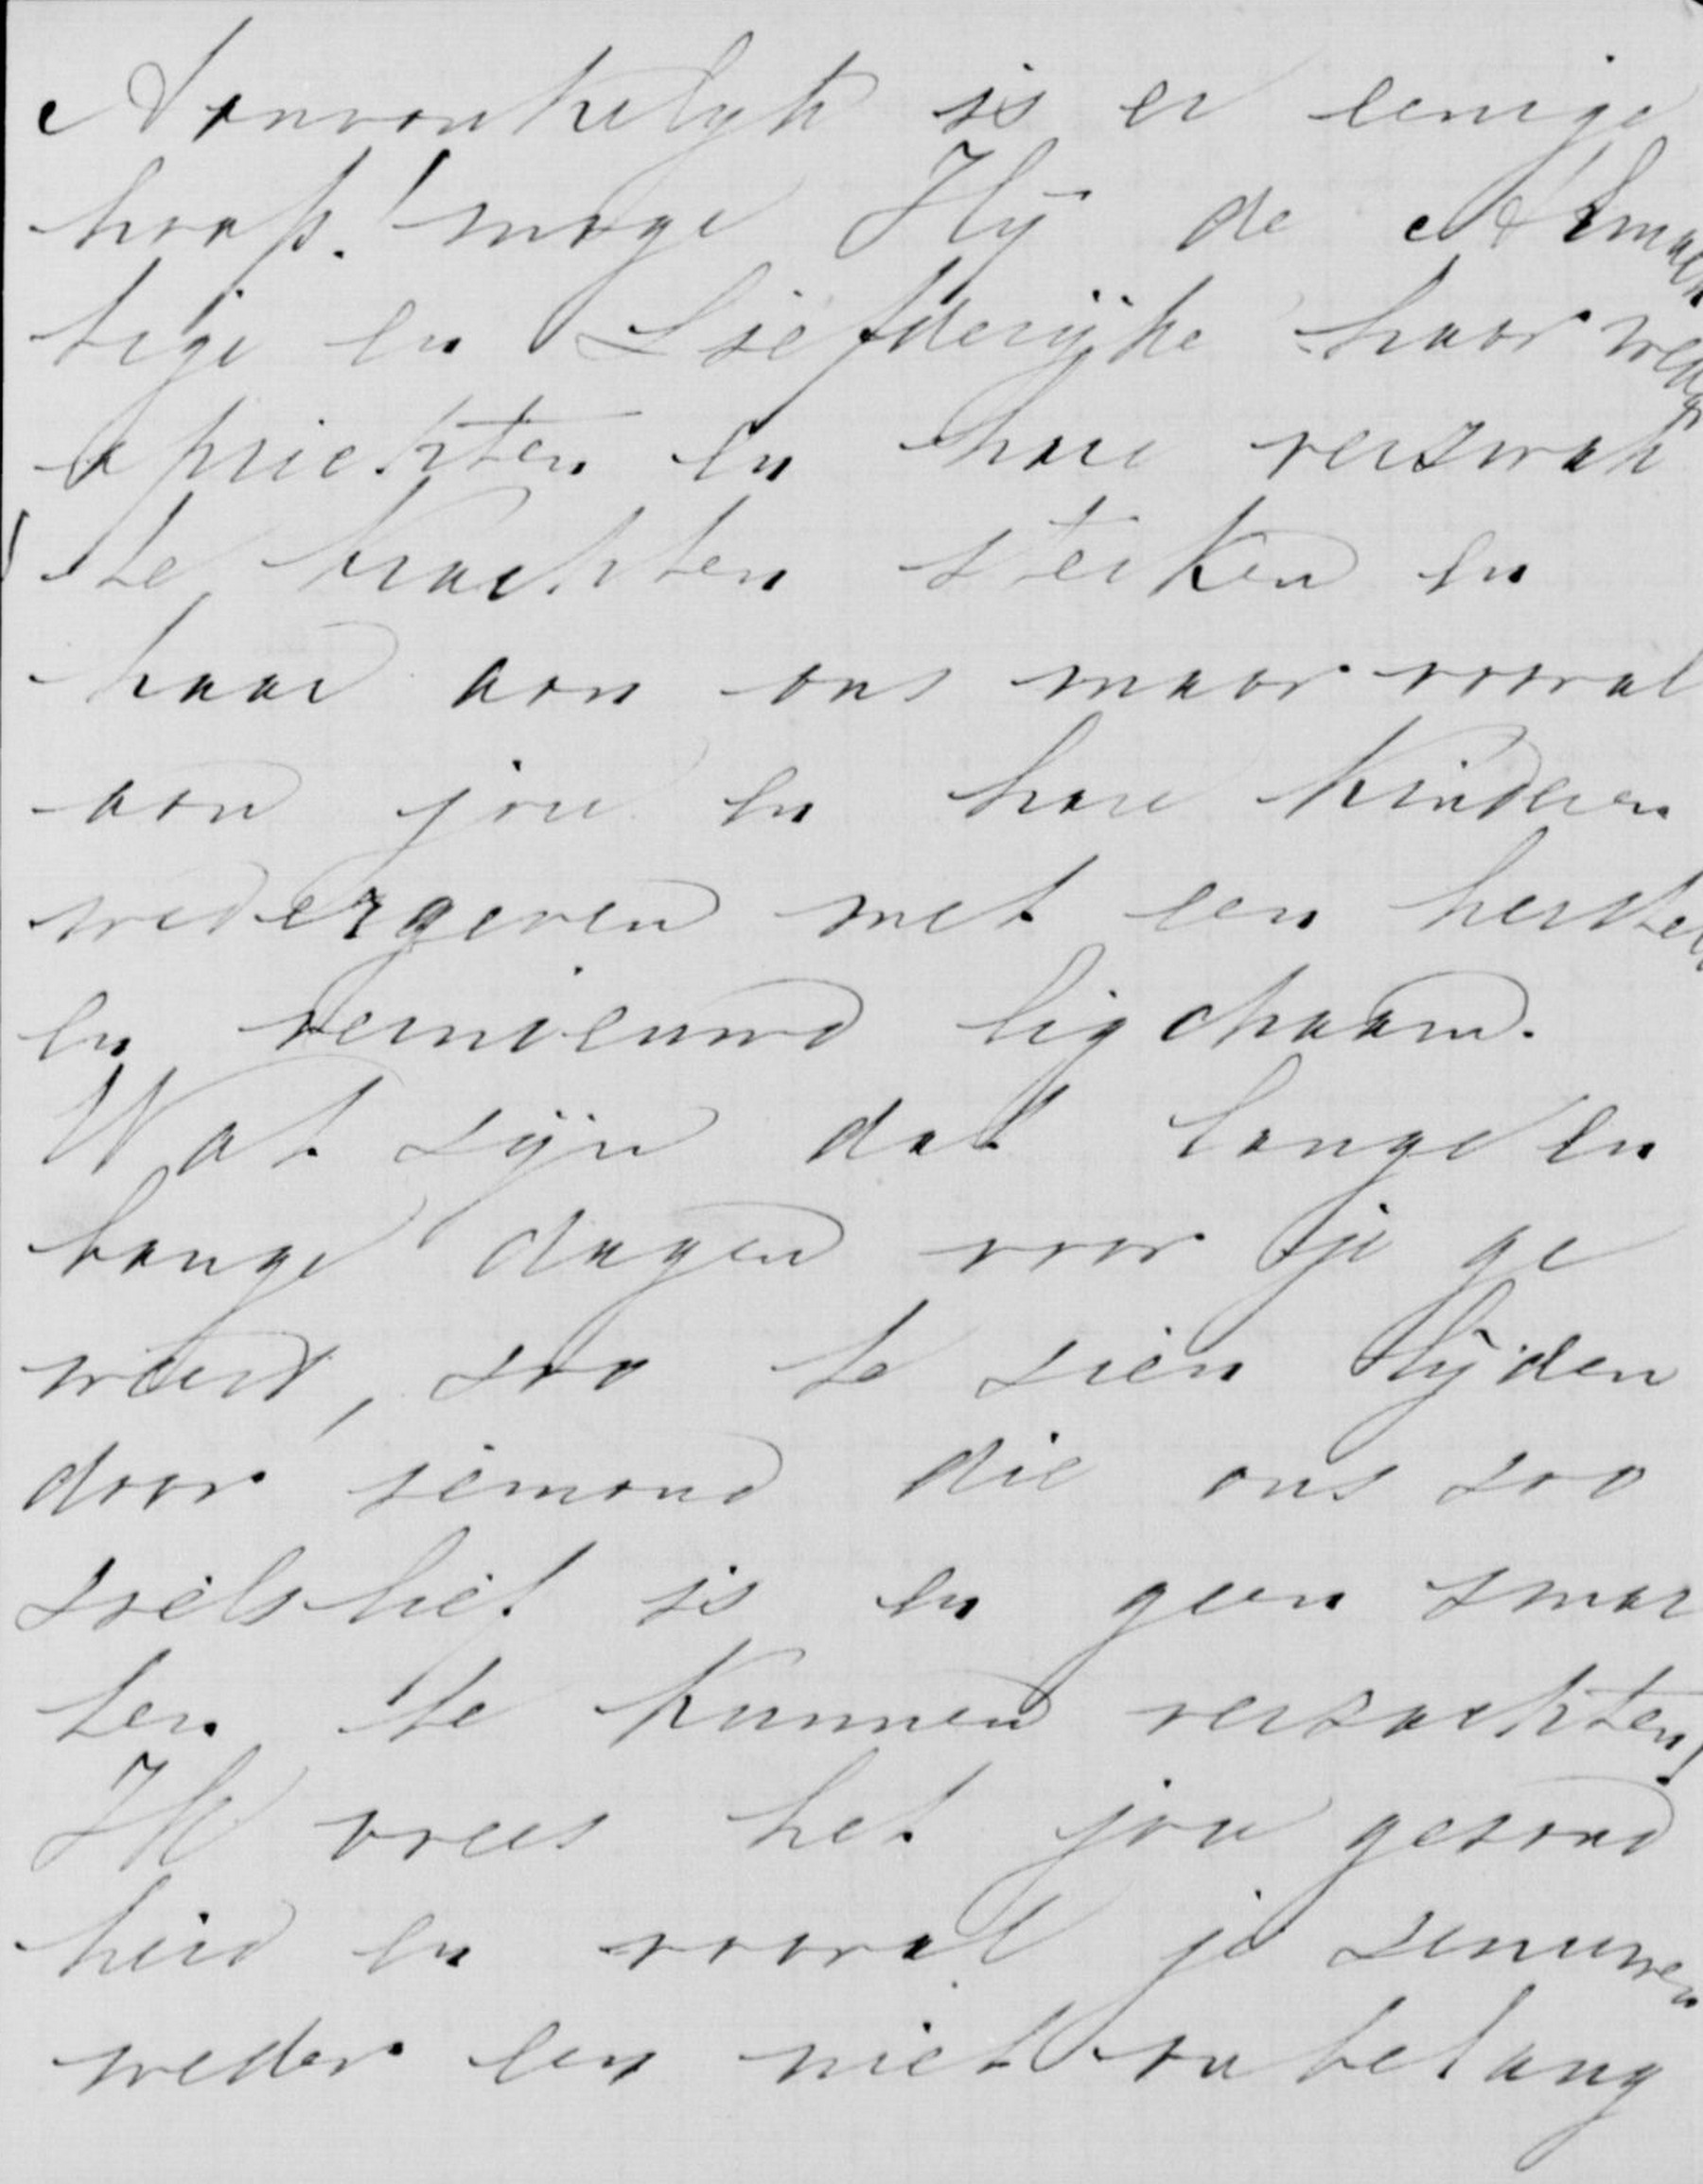 Aanvankelyk is er eenige
hoop! moge Hij de Almach
tige en Liefderijke haar weder
oprichten en hare verzwak
te krachten sterken en
haar aan ons maar vooral
aan jou en hare kinderen
wedergeven met een herstel
en vernieuwd ligchaam.
Wat zijn dat lange en
bange dagen voor je ge
weest, zoo te zien lijden
door iemand die ons zoo
zielslief is en geen smar
ten te kunnen verzachten!
Ik vrees het jou gezond
heid en vooral je zenuwen
weder een niet onbelang